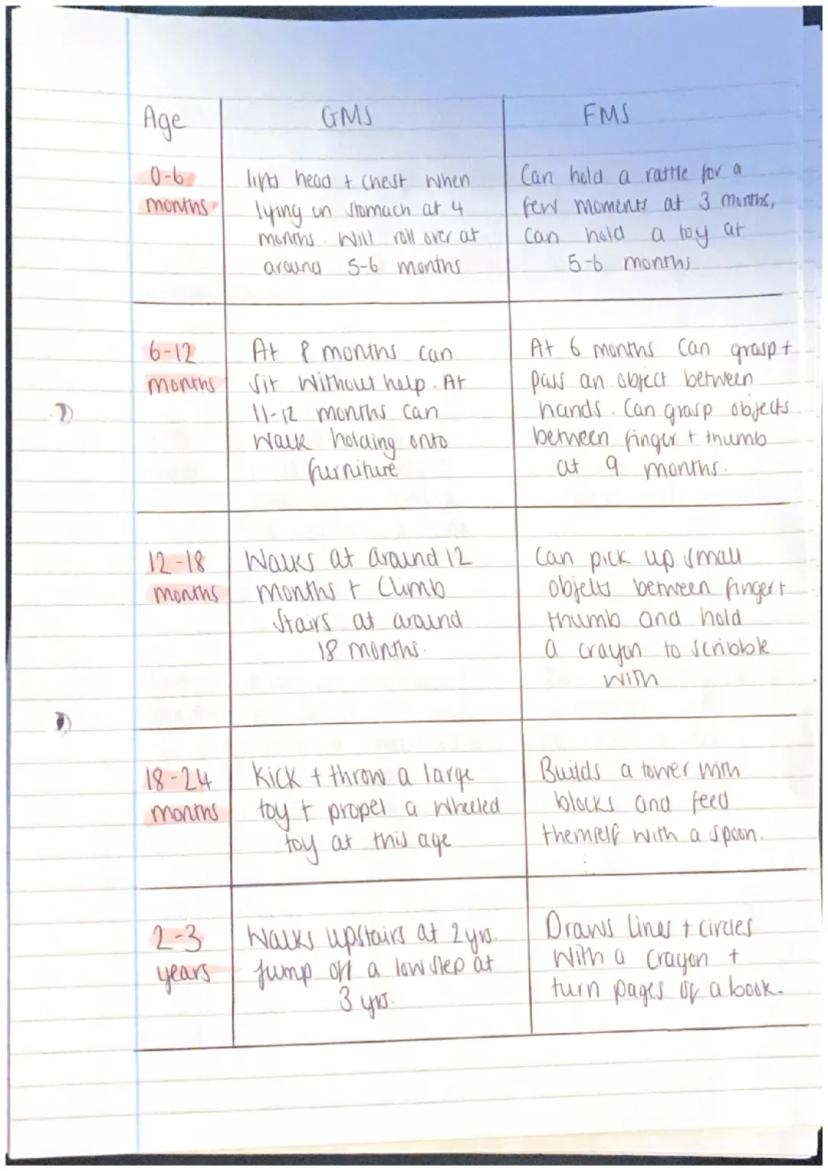 Age GMS FMS
0-6
months
lifts head + chest when
lying on stomach at 4
months. Will roll over at
around 5-6 months
Can hold a rattle for a
few moments at 3 months,
can hold a toy at
5-6 months
6-12
months
At 8 months can
sit without help. At
11-12 months can
walk holding onto
furniture
At 6 months can grasp +
pass an object between
hands. Can grasp objects
between finger + thumb
at 9 months.
12-18
months
Walks at around 12
months + climb
stairs at around
18 months.
Can pick up small
objects between finger +
thumb and hold
a crayon to scribble
with
18-24
months
Kick + throw a large
toy + propel a wheeled
toy at this age
Builds a tower with
blocks and feed
themself with a spoon.
2-3
years
Walks upstairs at 2yrs.
Jump off a low step at
3 yrs.
Draws lines + circles
with a crayon +
turn pages of a book.